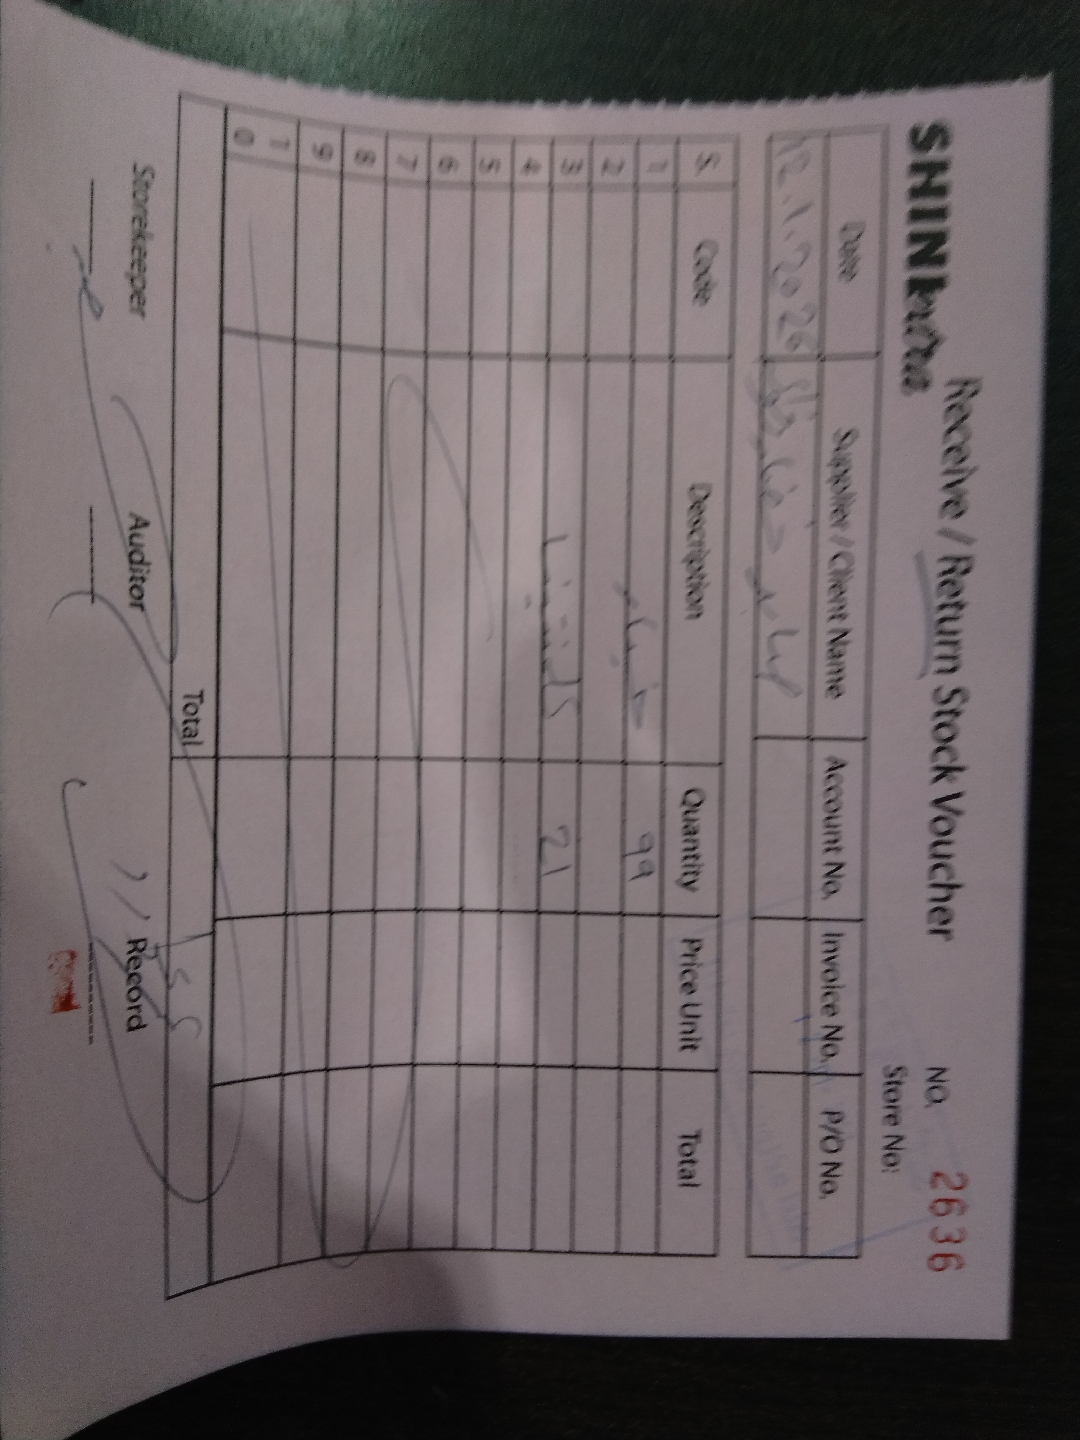 Receive / Return Stock Voucher
SHINE
NO. 2636
Store No:
Date Supplier / Client Name Account No. Invoice No. P/O No.
12.1.2026
S. Code Description Quantity Price Unit Total
1 99
2
3 21
4
5
6
7
8
9
10
Total
Storekeeper Auditor Record